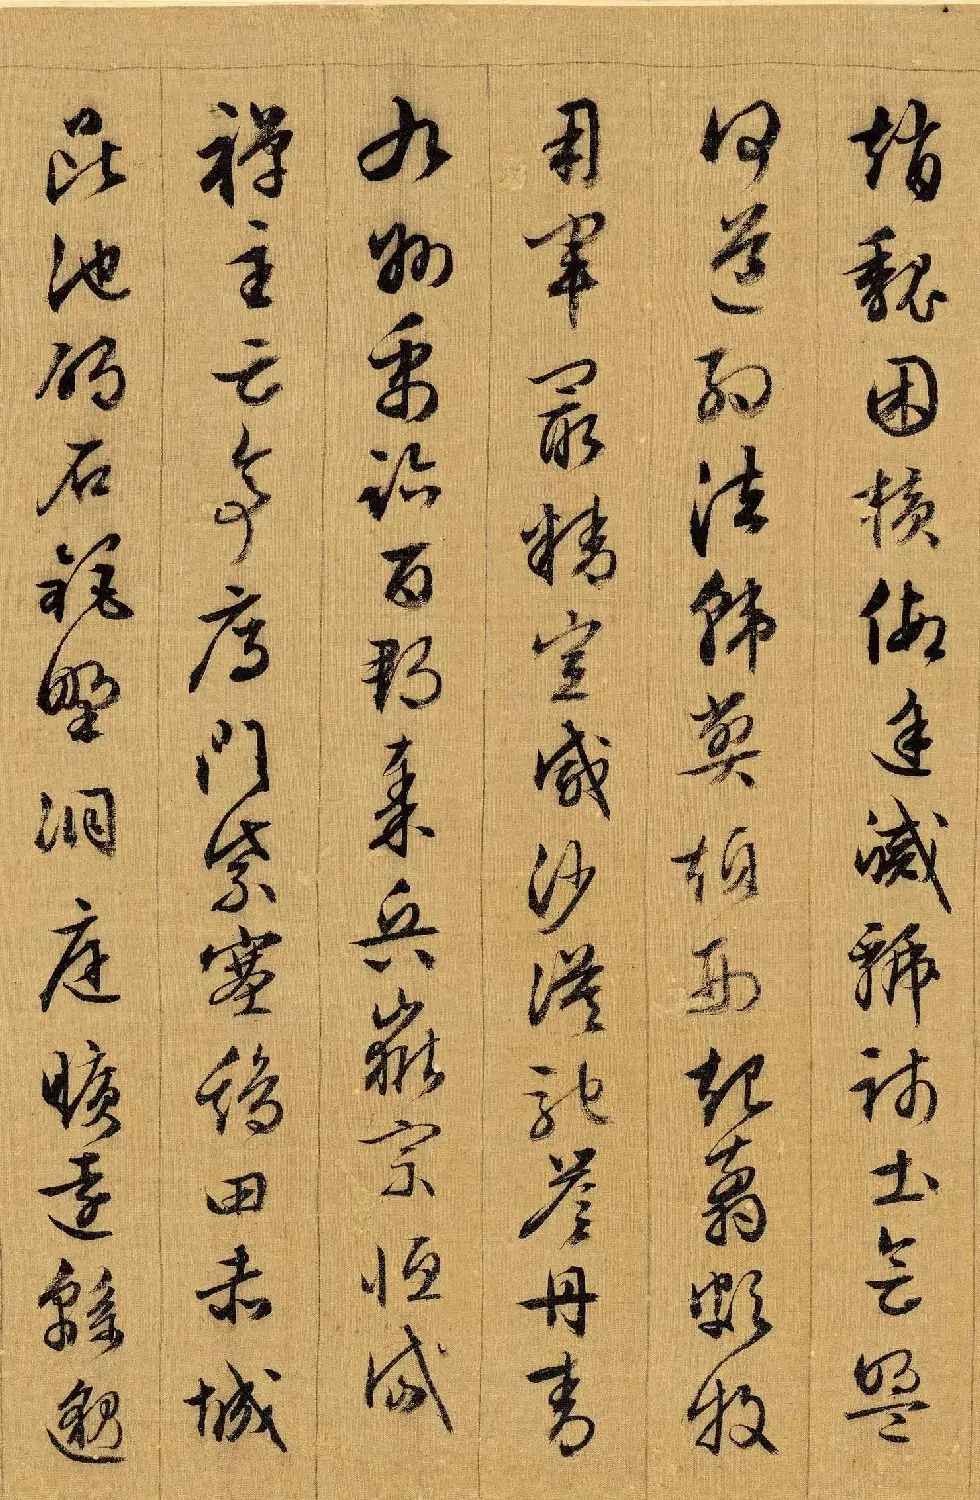 趙魏困橫假途滅虢踐土會盟
何遵約法韓弊煩刑起翦頗牧
用軍最精宣威沙漠馳譽丹青
九州禹跡百郡秦兵嶽宗恒岱
禪主云亭雁門紫塞鷄田赤城
昆池碣石鉅野洞庭曠遠緜邈